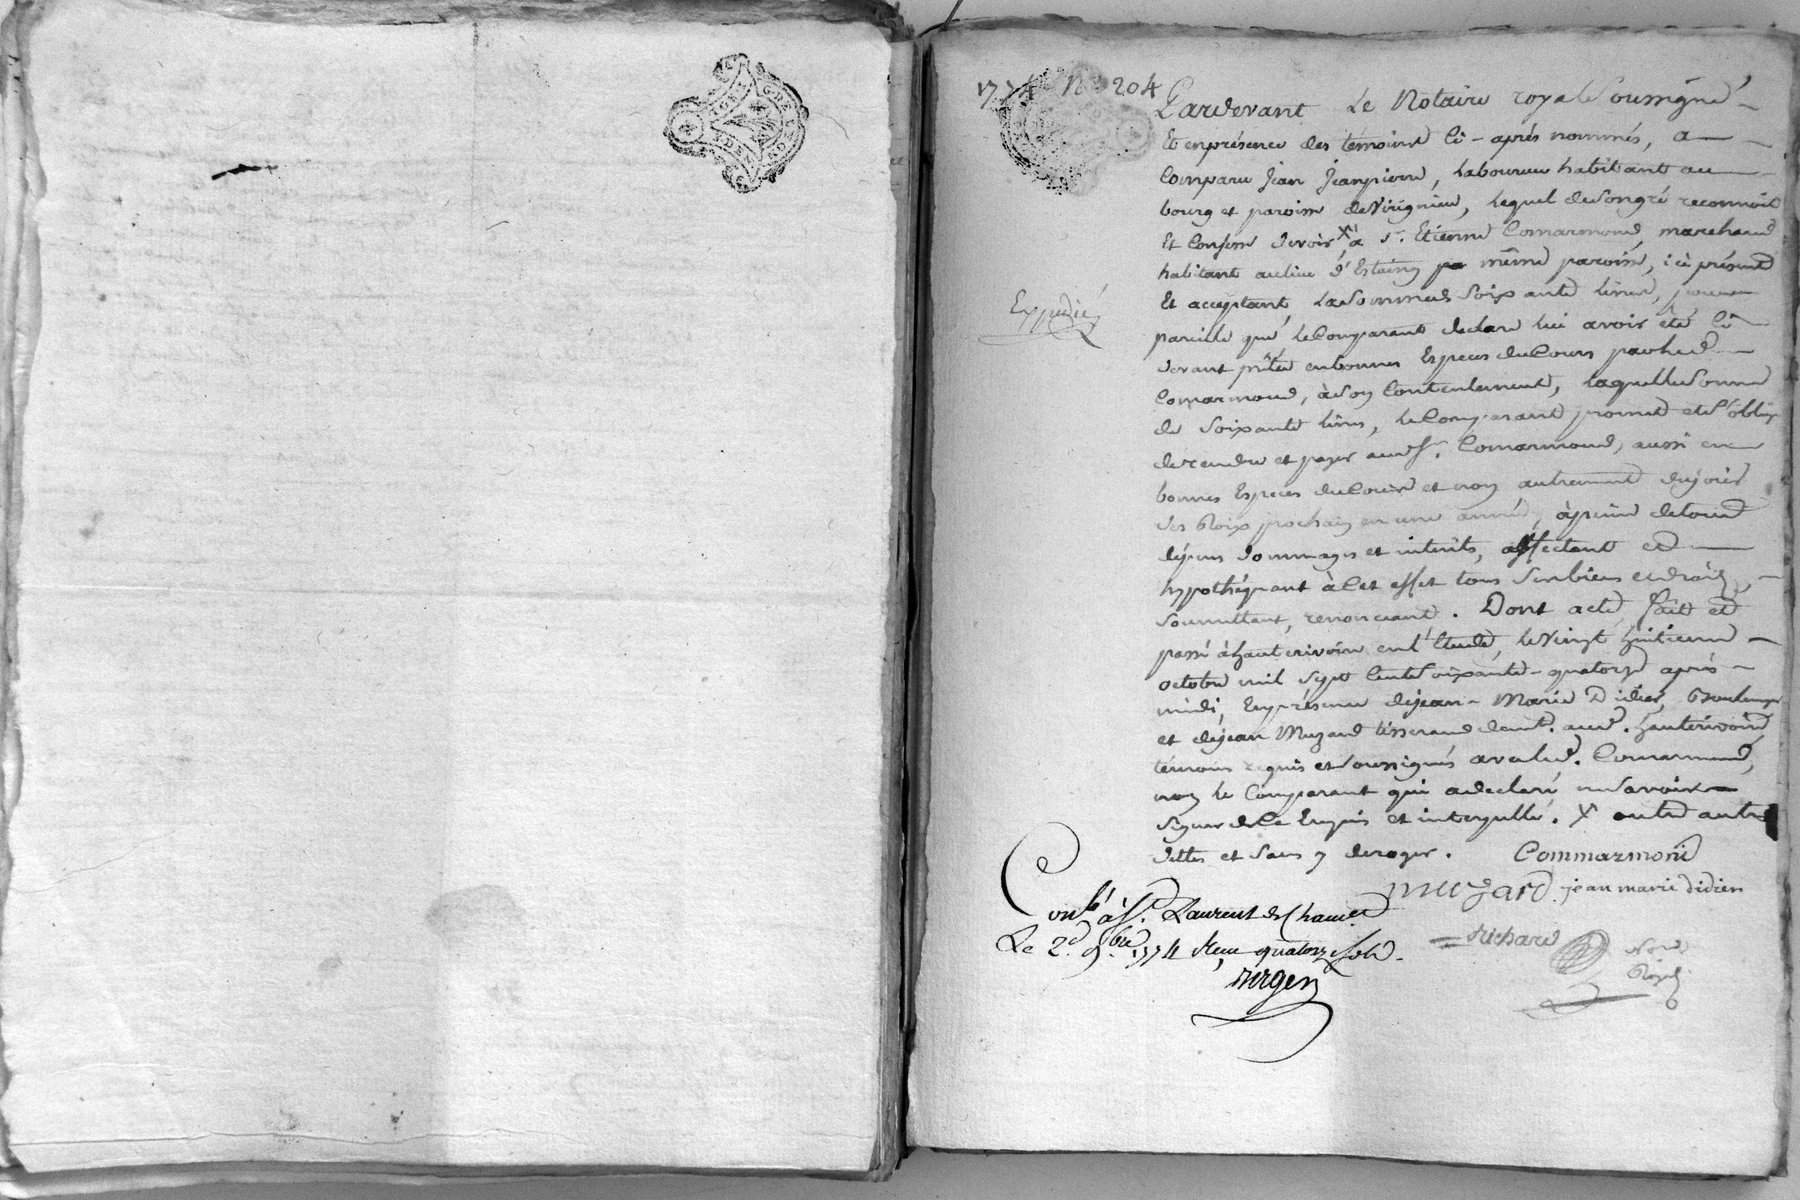 1774 N° 204
Pardevant Le Notaire royal Soussigné
Et enprésence des témoins Ci-après nommés, a
Comparu Jean Jeanpierre, Laboureur habitant au
bourg et paroisse de Virignieu, Lequel de Songré reconnoit
Et Confesse devoir X à Sr. Etienne Comarmond, marchand
habitant aulieu d'Estaing même paroisse, ici présent
Et acceptant, La Somme de Soixante Livres,
pareille que Le Comparant declare lui avoir été Ci
devant prêtée enbonnes Especes du Cours par led.
Comarmond, à Son Contentement, Laquelle Somme
de Soixante Livres, Le Comparant promet et S'oblige
de rendre et payer aud. S. Comarmond, aussi en
bonnes Especes du Cours et non autrement du jour
des Rois prochain en une année, à peine de tous
dépens dommages et interêts, affectant et
hypothéquant à Cet effet tous Ses biens et droits,
Soumettant, renonciant. Dont acte, fait et
passé à hauterivoire en l'Etude, Le Vingt huitieme
octobre mil Sept Cent Soixante-quatorze après
midi, En présence de jean-Marie Didier, Boulanger
et de jean Muzard tisserand demt. aud. hauterivoire
témoins requis et Soussignés avec led. Comarmond,
non Le Comparant qui a declaré ne Savoir
Signer de Ce Enquis et interpellé. X outre autres
dettes et Sans y deroger. Commarmond
Expedié
muzard. jean marie didier
Richard
Nore
Royal
Conlé à St. Laurent de Chamet
Le 2d. 9bre. 1774 Reçu quatorze Sols